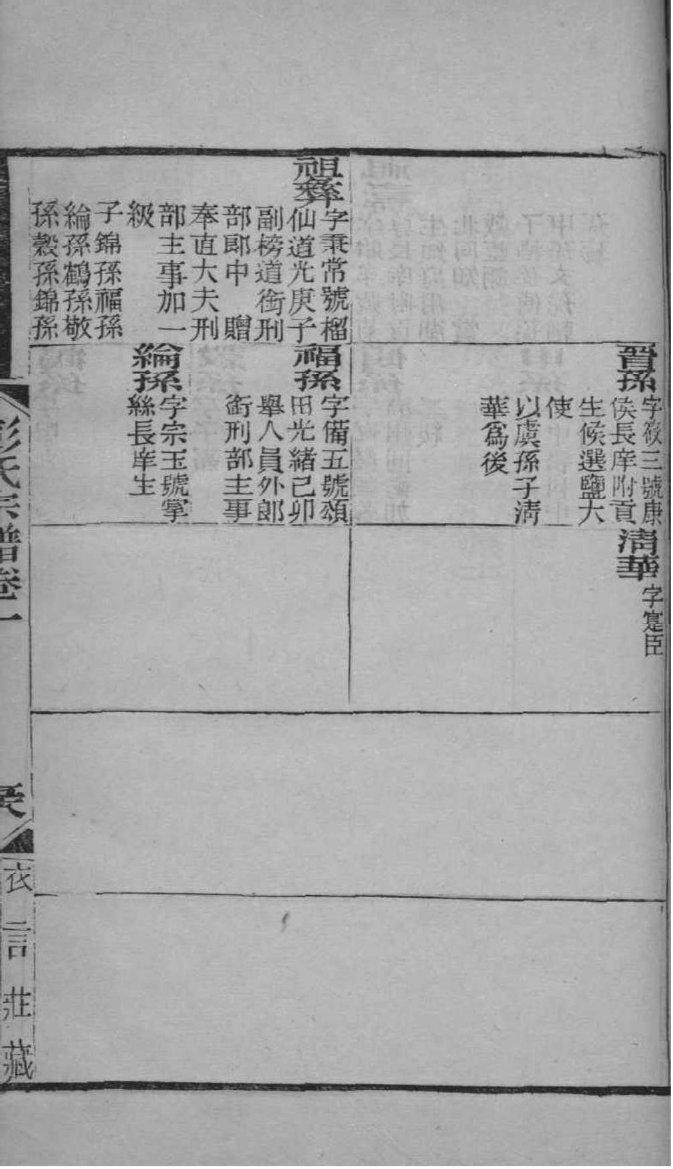 祖彝
字秉常號榴
仙道光庚子
副榜道銜刑
部郎中 贈
奉直大夫刑
部主事加一
級
子錦孫福孫
綸孫鶴孫敬
孫穀孫錦孫
晉孫
字筱三號康
侯長庠附貢
生候選鹽大
使
以虞孫子清
華為後
福孫
字備五號頌
田光緒己卯
舉人員外郎
銜刑部主事
綸孫
字宗玉號掌
絲長庠生
清華
字寔臣
彭氏宗譜卷一
衣言莊藏